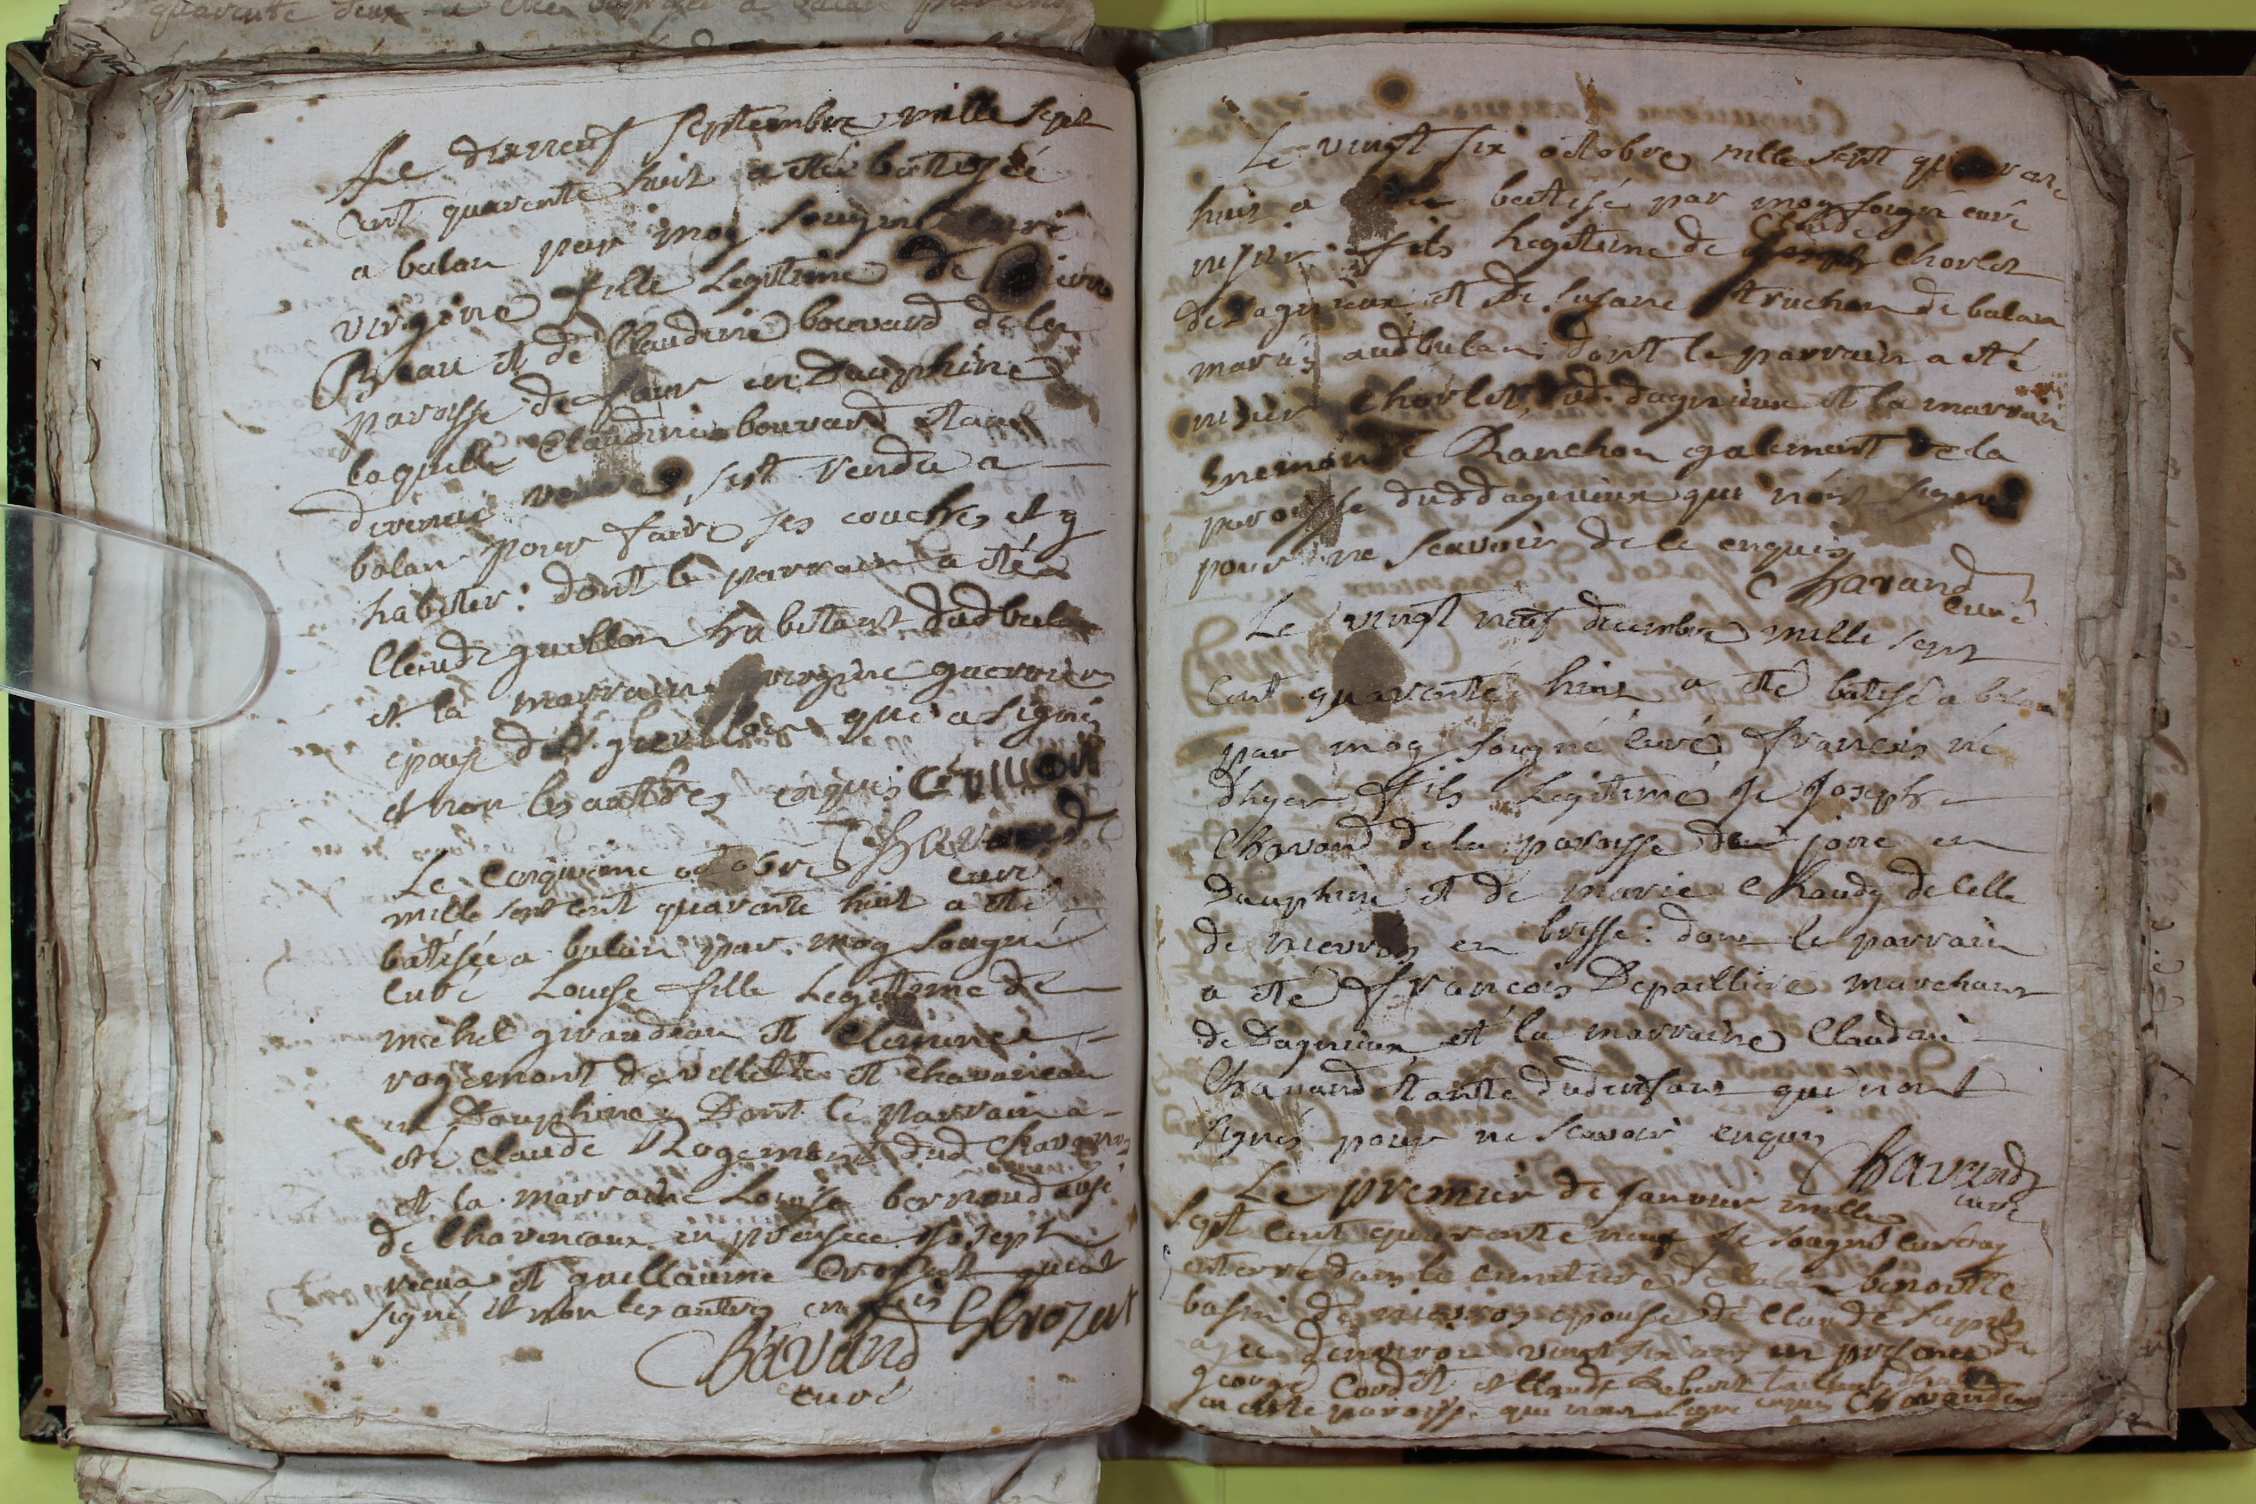 Le dixneuf septembre mille sept
cent quarente huit a eté batisée
a balan par moy sousigné curé
virginie fille legitime de pierre
et de Claudine bouvard de la
paroisse de en Dauphiné
laquelle Claudine bouvard etant
devenue veuve s'est rendu a
balan pour faire ses couches et y
habiter: dont le parrain a eté
Claude guillon habitant dud balan
et la marraine virginie guerrier
epouse dud guillon qui a signé
et non les autres enquis C Guillon
Chavand
curé
Le cinquieme octobre
mille sept cent quarante huit a eté
batisée a balan par moy sougné
curé Louise fille legitime de
michel giraudeau et Clemence
rogemont de villette et chavaneau
en Dauphine Dont le parrain a
eté Claude Rogemont dud
et la marraine Louise bernoud aussi
de en presence Joseph
et guillaume qui ont
signé et non les autres enquis
Chavand
curé
Le vingt six octobre mille sept quarante
huit a eté batisé par moy sougné curé
nisier fils legitime de Claude Chorlet
de dagnieux et de susane truchon de balan
mariés aud balan dont le parrain a eté
nisier Chorlet, dud dagnieux et la marraine
Ranchon galement de la
paroisse dud dagnieux qui n'ont signé
pour ne scavoir de ce enquis
Chavand
curé
Le vingt neuf decembre mille sept
cent quarante huit a eté batisé a balan
par moy sougné curé francois né
d'hyer fils legitime de Joseph
Chavand de la paroisse de en
Dauphine et de marie Chaudy de celle
de nievroz en bresse: dont le parrain
a eté francois Depailliere marchant
de Dagnieux et la marraine Claudine
Chavand tante dudit enfant qui n'ont
signés pour ne scavoir enquis
Chavand
curé
Le premier de janvier mille
sept cent quarante neuf Je sougné curé ay
enterré dans le cimetiere de balan benoitte
basin de nievroz epouse de Claude
agée d'environ vingt six ans en presence de
george et Claude Robert
en cette paroisse qui n'ont signé enquis Chavand curé